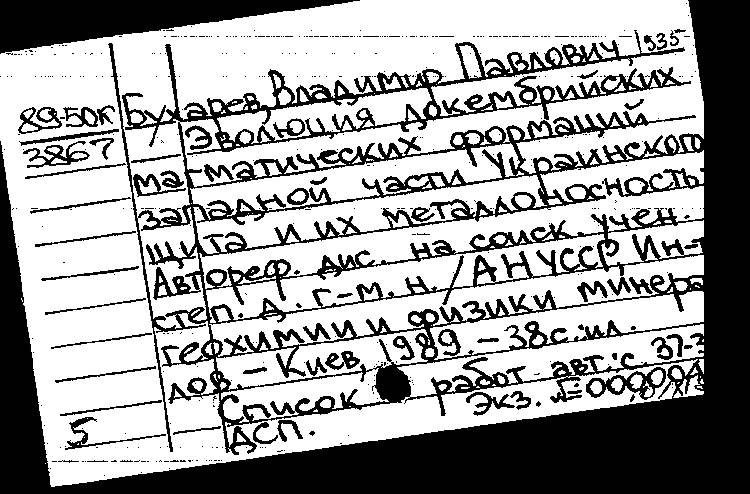 89-50к
3867
Бухарев, Владимир Павлович, 1935
Эволюция докембрийских
магматических формаций
западной части Украинского
щита и их металлоносность:
Автореф. дис. на соиск. учен.
степ. д. г.-м. н. / АН УССР, Ин-т
геохимии и физики минера
лов. – Киев, 1989. – 38 с.: ил.
Список работ авт.: с. 37-3
ДСП. Экз. №000004
5